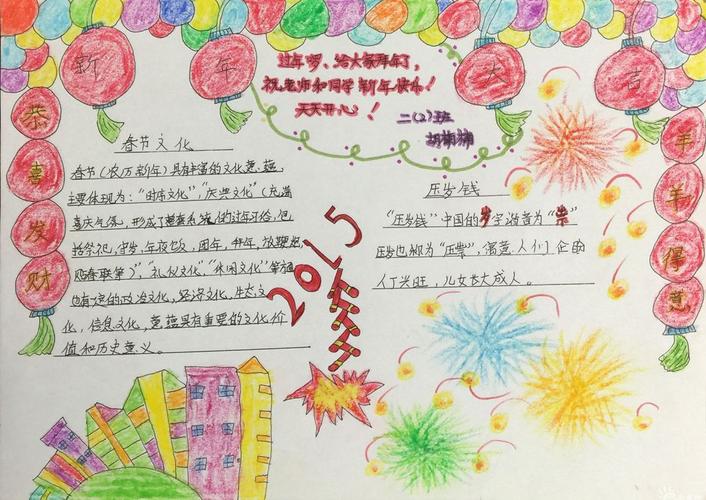 新年大吉
恭喜发财
过年啰、给大家拜年了,
祝老师和同学新年快乐!
天天开心!
二(2)班
春节文化
春节(农历新年)具有丰富的文化意蕴,
主要体现为:"时序文化","庆典文化"(充满
喜庆气氛,形成了
的过年习俗,包
括祭祀,守岁,年夜饭,团年,拜年,放鞭炮
贴春联等)","礼仪文化","休闲文化"等方面
也有一定的政治文化,经济文化,生态文
化,信息文化,意蕴具有重要的文化价
值和历史意义。
2015
压岁钱
"压岁钱"中国的岁字谐音为"祟"
压岁也称为"压祟",寓意人们企盼
人丁兴旺,儿女长大成人。
羊羊得意